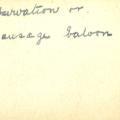 servation or
ausage baloon